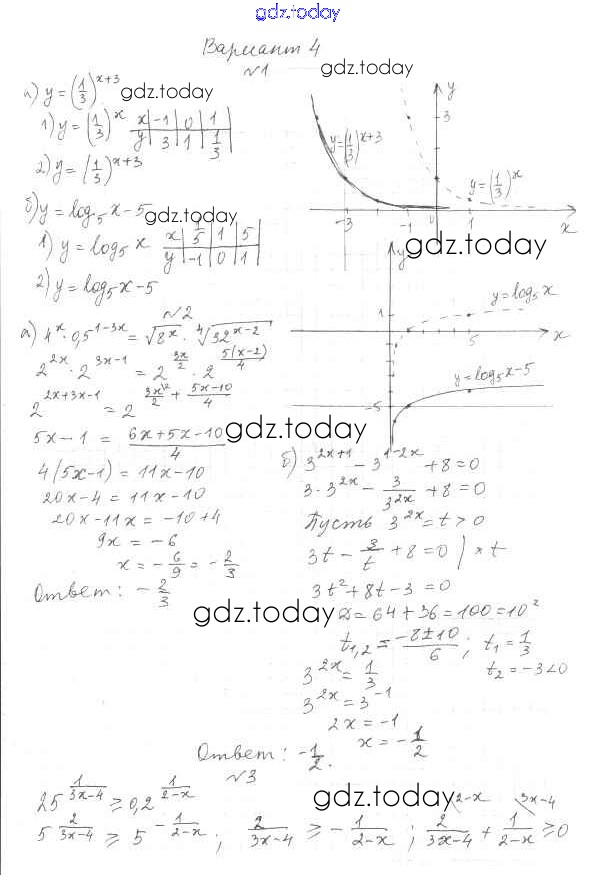 gdz.today
Вариант 4
№1
gdz.today
а) y = (1/3)^(x+3)
gdz.today
1) y = (1/3)^x
x | -1 | 0 | 1
y | 3 | 1 | 1/3
2) y = (1/3)^(x+3)
y
3
y = (1/3)^(x+3)
y = (1/3)^x
-3 -1 0 1 x
б) y = log₅ x - 5
gdz.today
1) y = log₅ x
x | 1/5 | 1 | 5
y | -1 | 0 | 1
2) y = log₅ x - 5
gdz.today
y
y = log₅ x
1
5 x
y = log₅ x - 5
-5
№2
а) 4^x · 0,5^(1-3x) = √(8^x) · ⁴√(32^(x-2))
2^(2x) · 2^(3x-1) = 2^(3x/2) · 2^(5(x-2)/4)
2^(2x+3x-1) = 2^(3x\2/2 + (5x-10)/4)
5x - 1 = (6x+5x-10)/4
gdz.today
4(5x-1) = 11x-10
20x-4 = 11x-10
20x-11x = -10+4
9x = -6
x = -6/9 = -2/3
Ответ: -2/3
б) 3^(2x+1) - 3^(1-2x) + 8 = 0
3·3^(2x) - 3/3^(2x) + 8 = 0
Пусть 3^(2x) = t > 0
3t - 3/t + 8 = 0 | × t
3t² + 8t - 3 = 0
gdz.today
D = 64 + 36 = 100 = 10²
t₁,₂ = (-8±10)/6; t₁ = 1/3
t₂ = -3 < 0
3^(2x) = 1/3
3^(2x) = 3^(-1)
2x = -1
x = -1/2
Ответ: -1/2.
№3
25^(1/(3x-4)) ≥ 0,2^(1/(2-x))
gdz.today
5^(2/(3x-4)) ≥ 5^(-1/(2-x)); 2/(3x-4) ≥ -1/(2-x); 2\2-x/(3x-4) + 1\3x-4/(2-x) ≥ 0